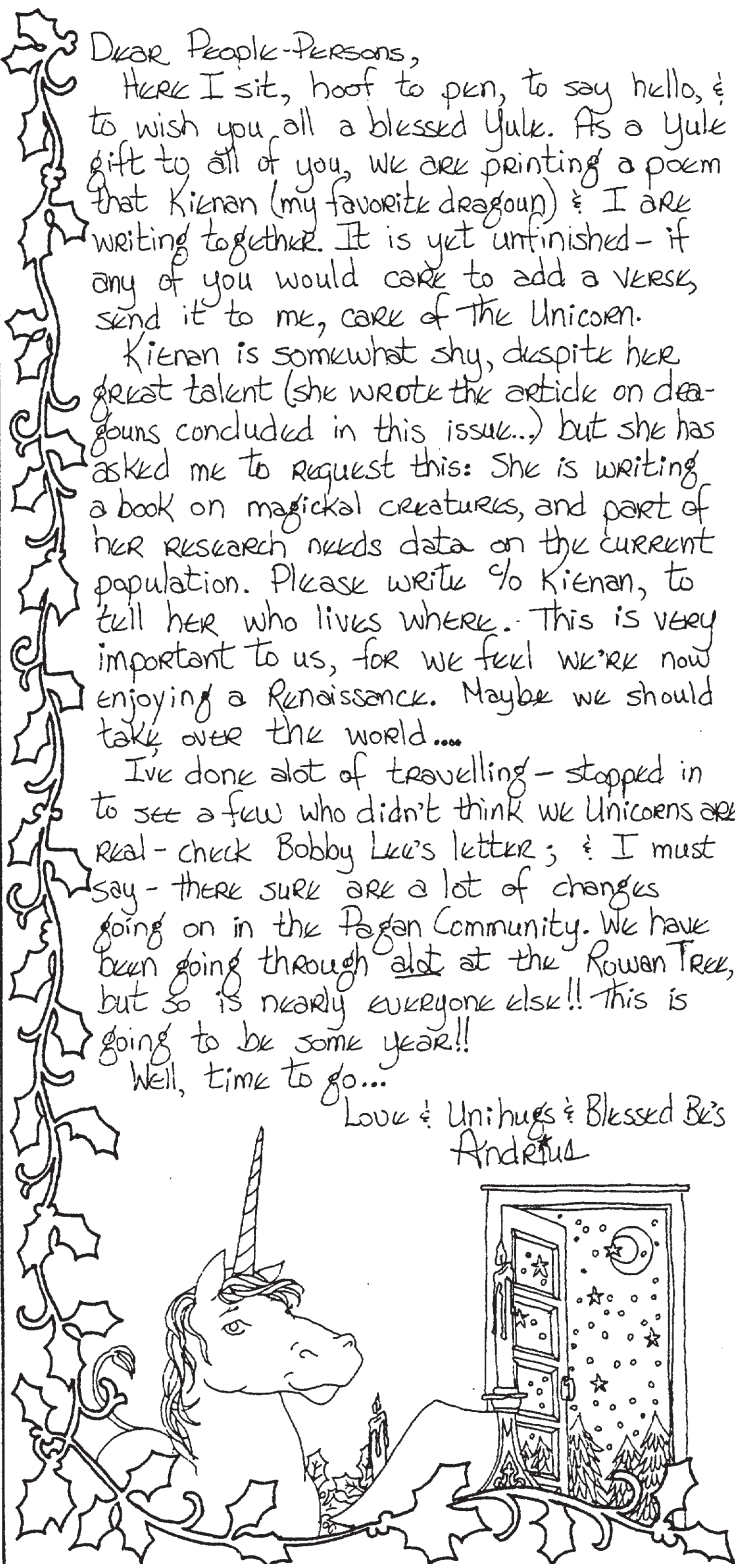 Dear People-Persons,
Here I sit, hoof to pen, to say hello, &
to wish you all a blessed Yule. As a Yule
gift to all of you, we are printing a poem
that Kienan (my favorite dragoun) & I are
writing together. It is yet unfinished - if
any of you would care to add a verse,
send it to me, care of The Unicorn.
Kienan is somewhat shy, despite her
great talent (she wrote the article on dra-
gouns concluded in this issue...) but she has
asked me to request this: She is writing
a book on magickal creatures, and part of
her research needs data on the current
population. Please write c/o Kienan, to
tell her who lives where. This is very
important to us, for we feel we're now
enjoying a Renaissance. Maybe we should
take over the world....
I've done alot of travelling - stopped in
to see a few who didn't think we Unicorns are
real - check Bobby Lee's letter; & I must
say - there sure are a lot of changes
going on in the Pagan Community. We have
been going through alot at the Rowan Tree,
but so is nearly everyone else!! This is
going to be some year!!
Well, time to go...
Love & Unihugs & Blessed Be's
Andrius